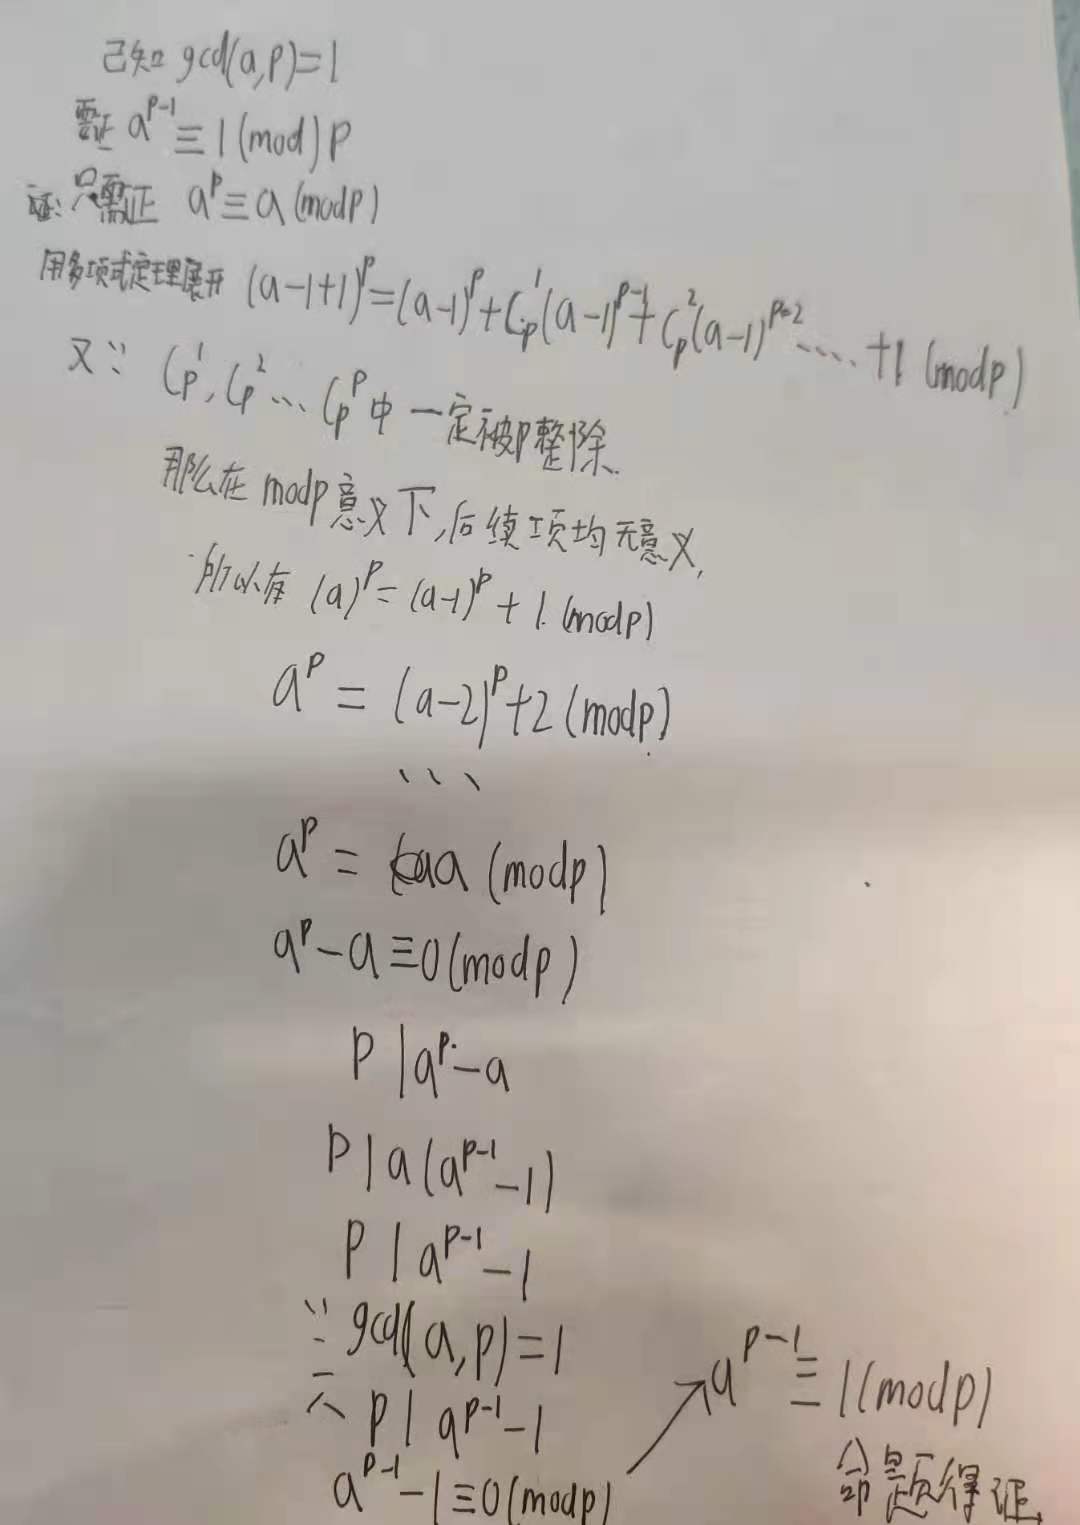 已知 gcd(a,p)=1
需证 a^{p-1} ≡ 1 (mod) p
证: 只需证 a^p ≡ a (modp)
用多项式定理展开 (a-1+1)^p = (a-1)^p + C_p^1 (a-1)^{p-1} + C_p^2 (a-1)^{p-2} ..... +1 (modp)
又∵ C_p^1, C_p^2 ... C_p^p 中 一定被p整除.
那么在 modp 意义下,后续项均无意义,
所以有 (a)^p = (a-1)^p + 1. (modp)
a^p = (a-2)^p + 2 (modp)
、、、
a^p = a (modp)
a^p - a ≡ 0 (modp)
P | a^p - a
P | a (a^{p-1} - 1)
P | a^{p-1} - 1
∵ gcd(a,p)=1
∴ P | a^{p-1} - 1
a^{p-1} - 1 ≡ 0 (modp)
→ a^{p-1} ≡ 1 (modp)
命题得证.